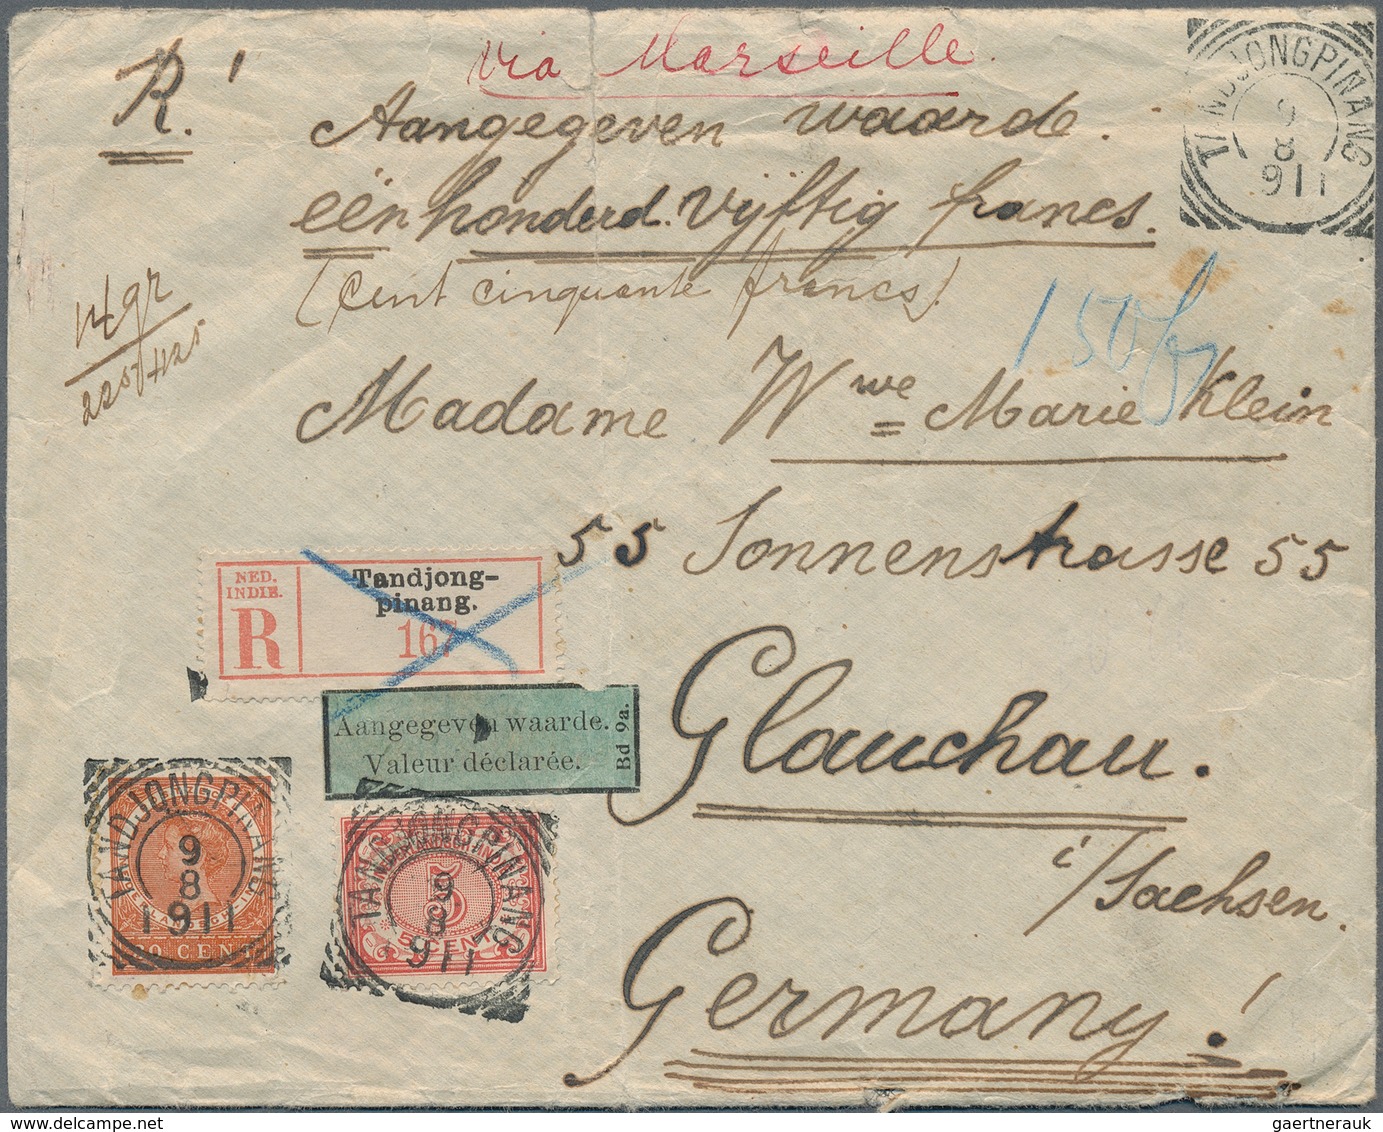 via Marseille.
R.
Aangegeven waarde.
eën honderd vijftig francs.
(Cent cinquante francs).
TANDJONGPINANG
9
8
911
14 gr
150 fr
Madame Wwe Marie Klein
55 Sonnenstrasse 55
NED.
INDIE.
R
Tandjong-
pinang.
167
Aangegeven waarde.
Valeur déclarée.
Bd 9a.
Glauchau.
i/Sachsen.
Germany!
TANDJONGPINANG
9
8
1911
CENT
TANDJONGPINANG
9
8
911
5
5 CENT
gaertnerauk @ delcampe.net